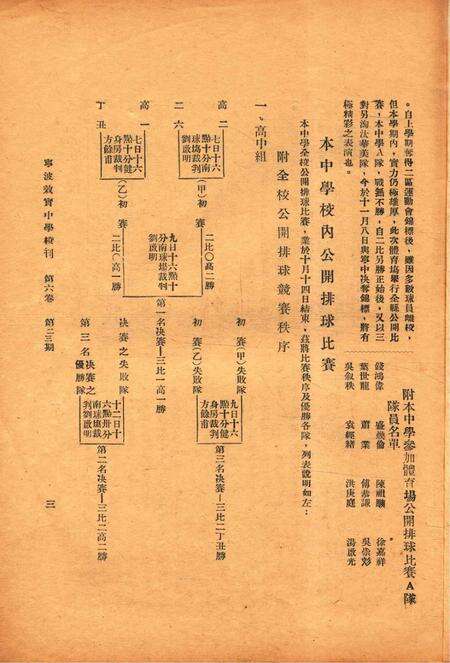 附本中學參加體育場公開排球比賽A隊
隊員名單。
錢鴻偉 盛羲倫 陳祖驥 徐嘉祥
葉世龍 蕭業 傅恭謙 吳崇彭
吳叙秩 袁經緒 洪庚庭 湯啟光
。自上學期奪得二區運動會錦標後，雖因多數球員離校，
但本學期內，實力仍極雄厚，此次體育塲舉行全縣公開比
賽，本中學A隊，戰無不勝，自二比另勝正始後，又以三
對另淘汰華美隊，今於十一月八日與寧中决奪錦標，將有
極精彩之表演也。
本中學校內公開排球比賽
本中學全校公開排球比賽，業於十月十四日結束，茲將比賽秩序及優勝各隊，列表說明如左：
附全校公開排球競賽秩序
一、高中組
高二
二六
高一
丁丑
七日十六
點十分南
球塲裁判
劉啟明
(甲)初賽
二比〇高二勝
七日十六
點十分健
身房裁判
方餘甫
(乙)初賽
二比〇高一勝
九日十六點十
分南球塲裁判
劉啟明
第一名决賽—三比一高一勝
初賽(甲)失敗隊
初賽(乙)失敗隊
九日十六
點十分健
身房裁判
方餘甫
第三名决賽—三比二丁丑勝
决賽之失敗隊
第三名决賽之
優勝隊
十二日十
六點卅分
南球塲裁
判劉啟明
第二名决賽—三比二高二勝
寧波效實中學校刊 第六卷 第二三期 三